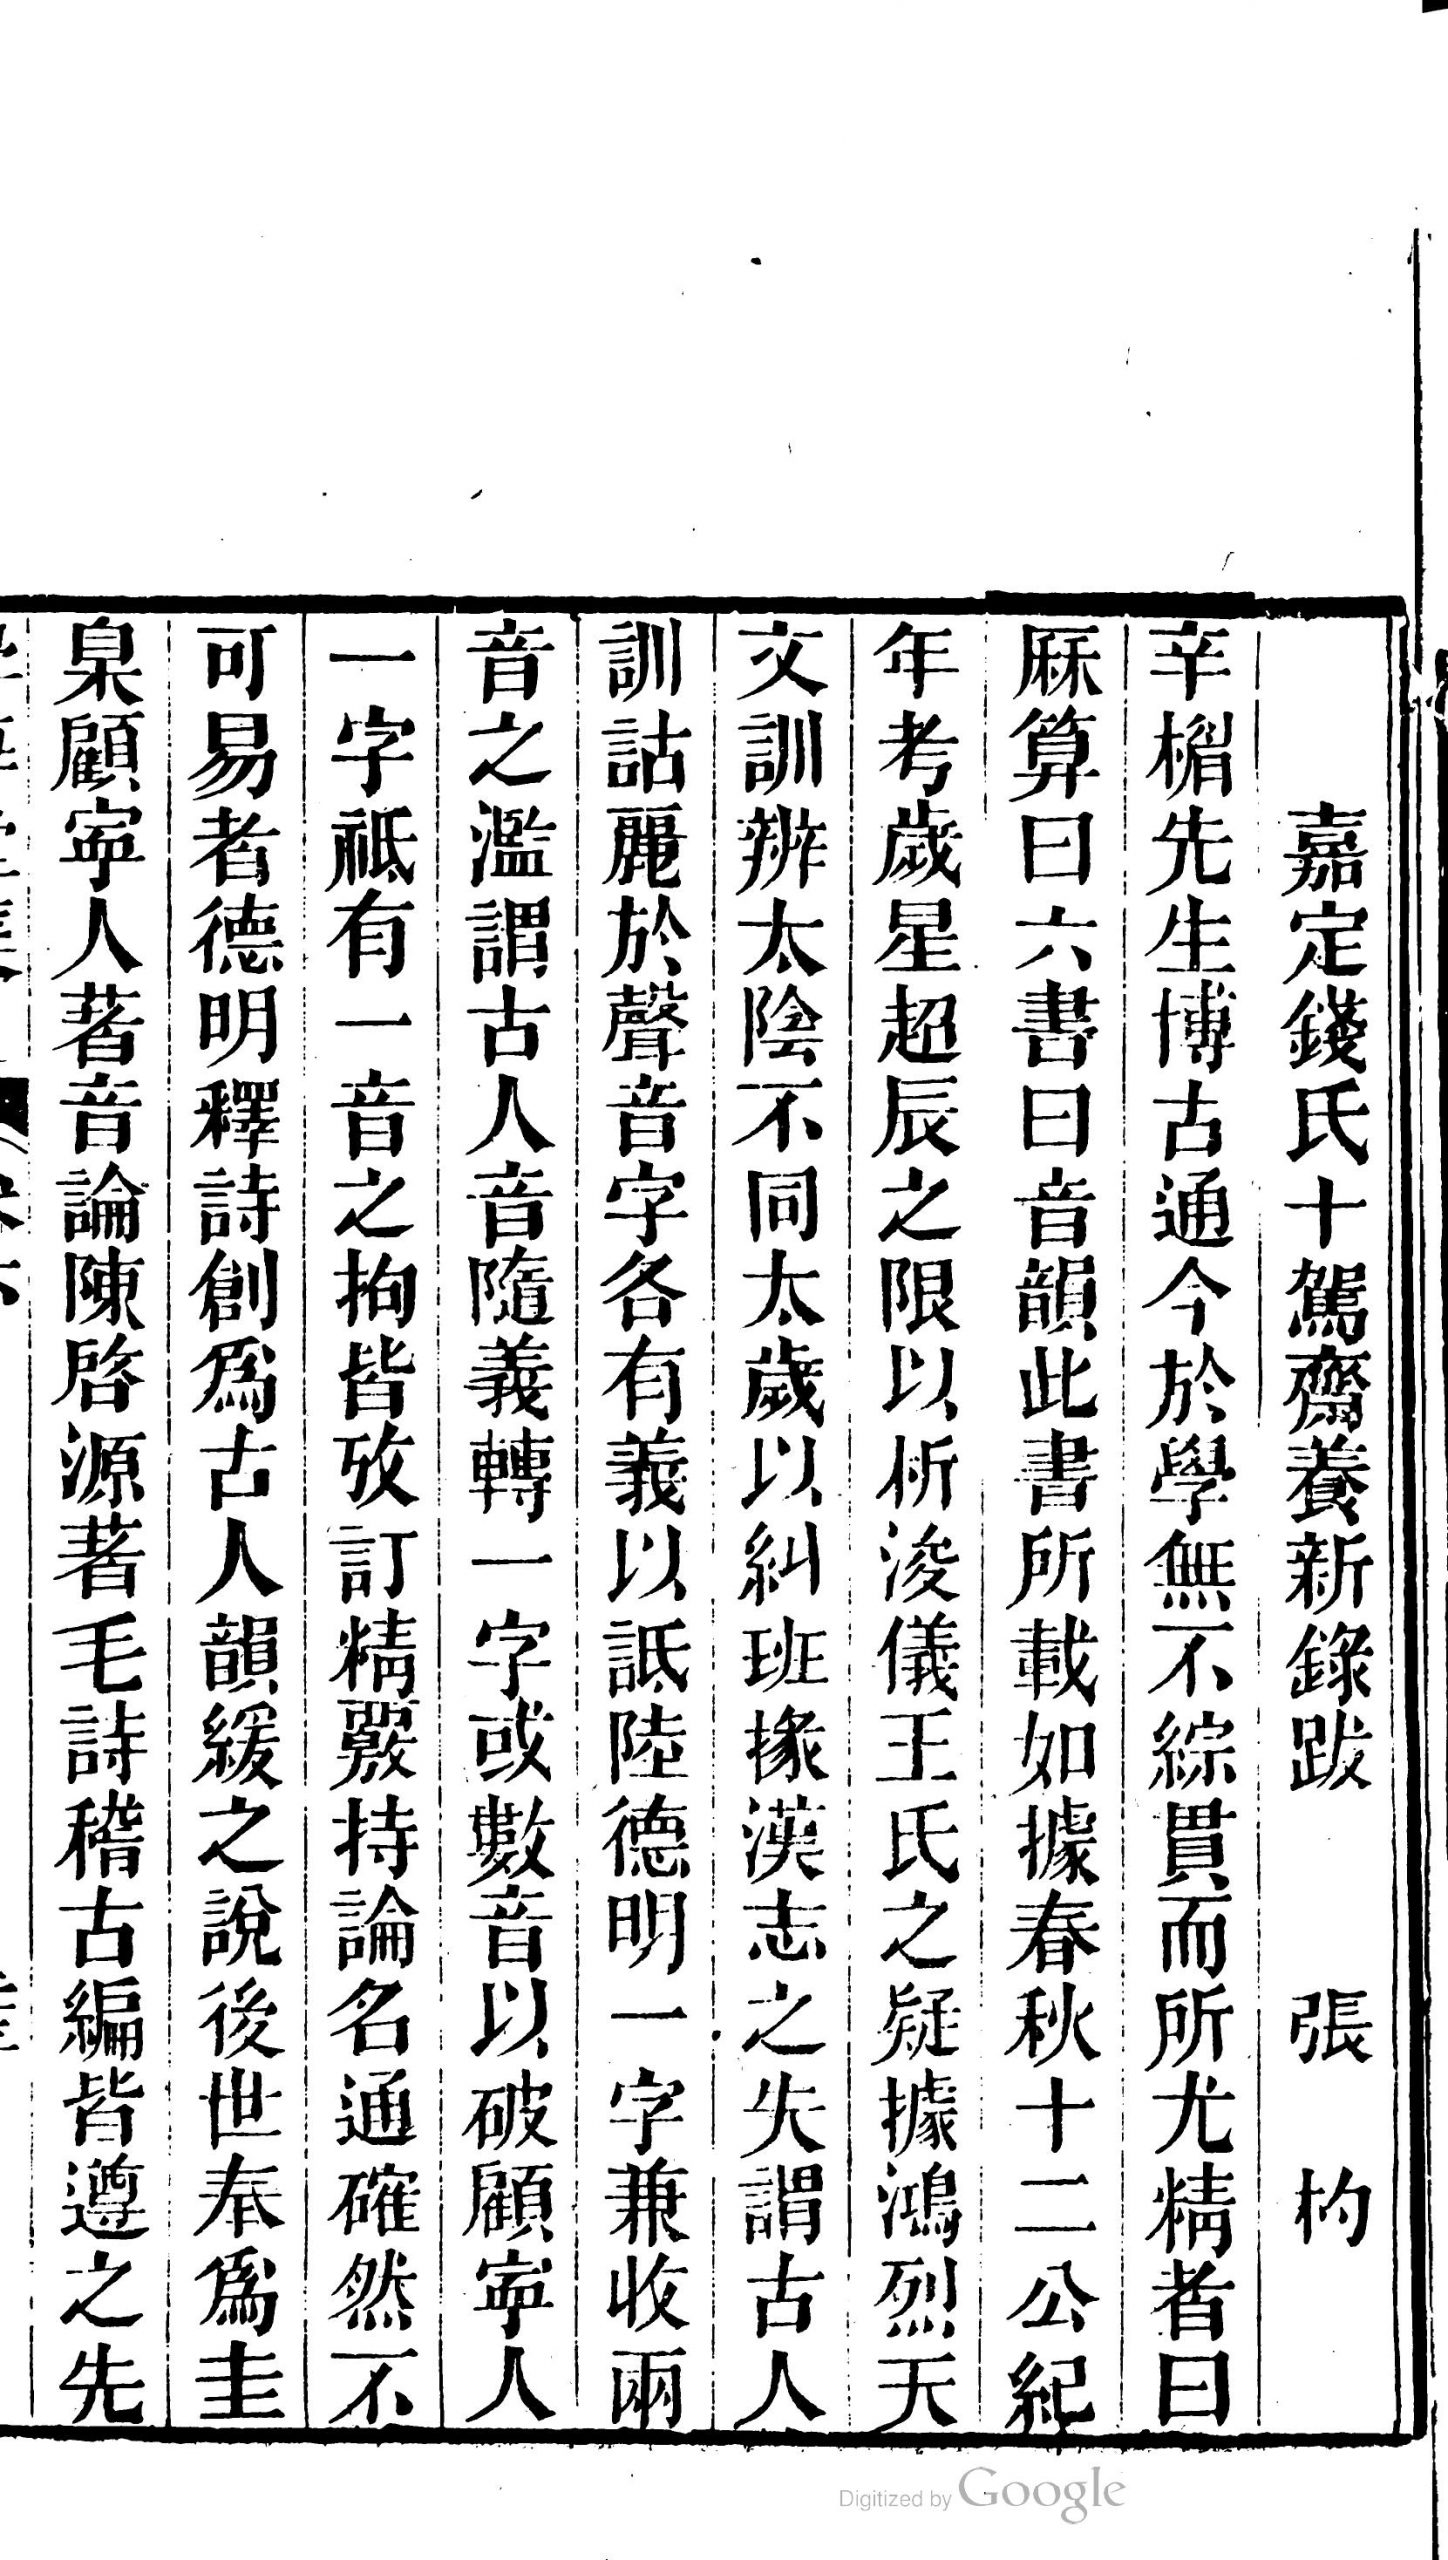 嘉定錢氏十駕齋養新錄跋 張杓
辛楣先生博古通今於學無不綜貫而所尤精者曰
厤算曰六書曰音韻此書所載如據春秋十二公紀
年考歲星超辰之限以析浚儀王氏之疑據鴻烈天
文訓辨太陰不同太歲以糾班掾漢志之失謂古人
訓詁麗於聲音字各有義以詆陸德明一字兼收兩
音之濫謂古人音隨義轉一字或數音以破顧寧人
一字祗有一音之拘皆攷訂精覈持論名通確然不
可易者德明釋詩創為古人韻緩之說後世奉為圭
臬顧寧人著音論陳啓源著毛詩稽古編皆遵之先
Digitized by Google